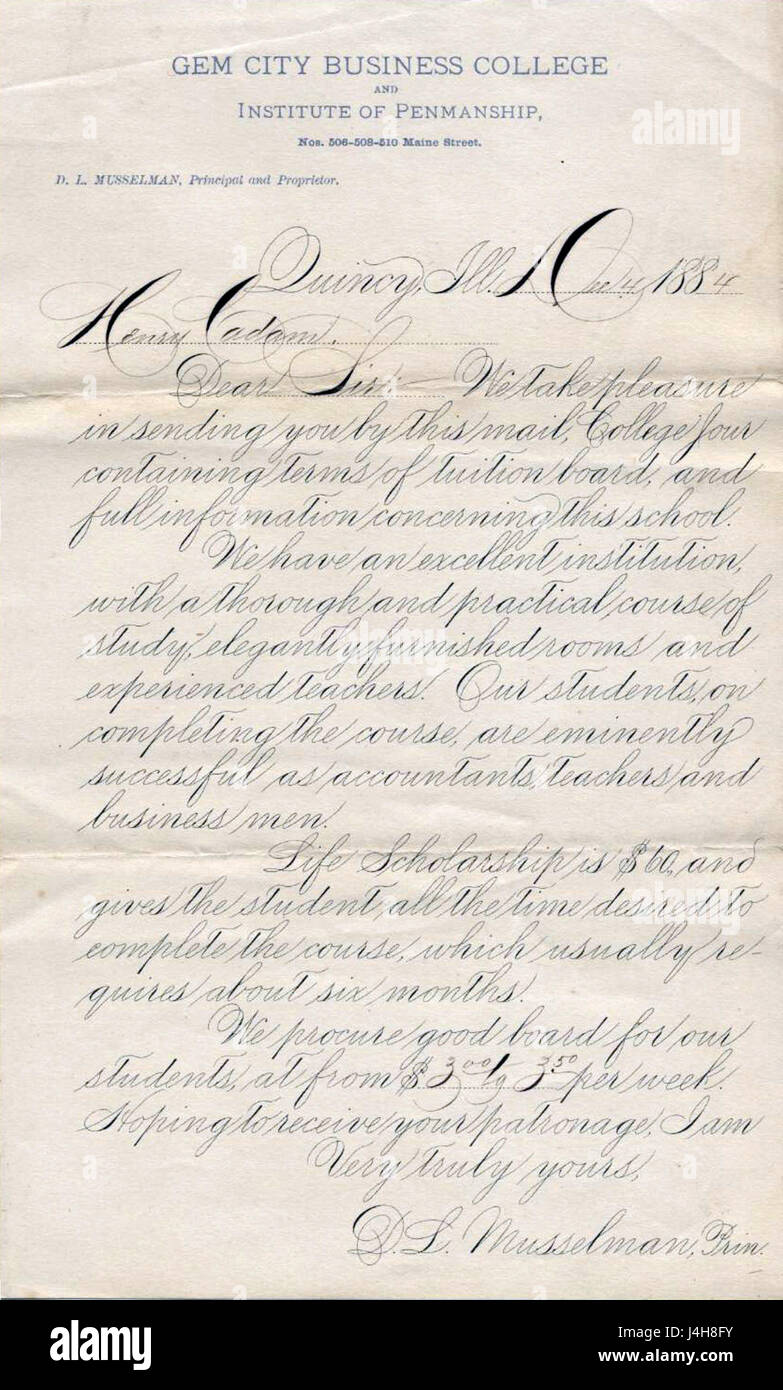 GEM CITY BUSINESS COLLEGE
AND
INSTITUTE OF PENMANSHIP,
Nos. 506-508-510 Maine Street.
D. L. MUSSELMAN, Principal and Proprietor.
Quincy, Ill. Dec 4, 1884
Henry Cadam.
Dear Sir We take pleasure
in sending you by this mail, College Jour
containing terms of tuition board, and
full information concerning this school.
We have an excellent institution,
with a thorough and practical course of
study, elegantly furnished rooms and
experienced teachers. Our students, on
completing the course, are eminently
successful as accountants, teachers and
business men.
Life Scholarship is $60, and
gives the student all the time desired to
complete the course, which usually re-
quires about six months.
We procure good board for our
students, at from $3.00 to 3.50 per week.
Hoping to receive your patronage, I am
Very truly yours,
D. L. Musselman, Prin.
alamy stock photo
alamy stock photo
alamy stock photo
alamy
Image ID: J4H8FY
www.alamy.com